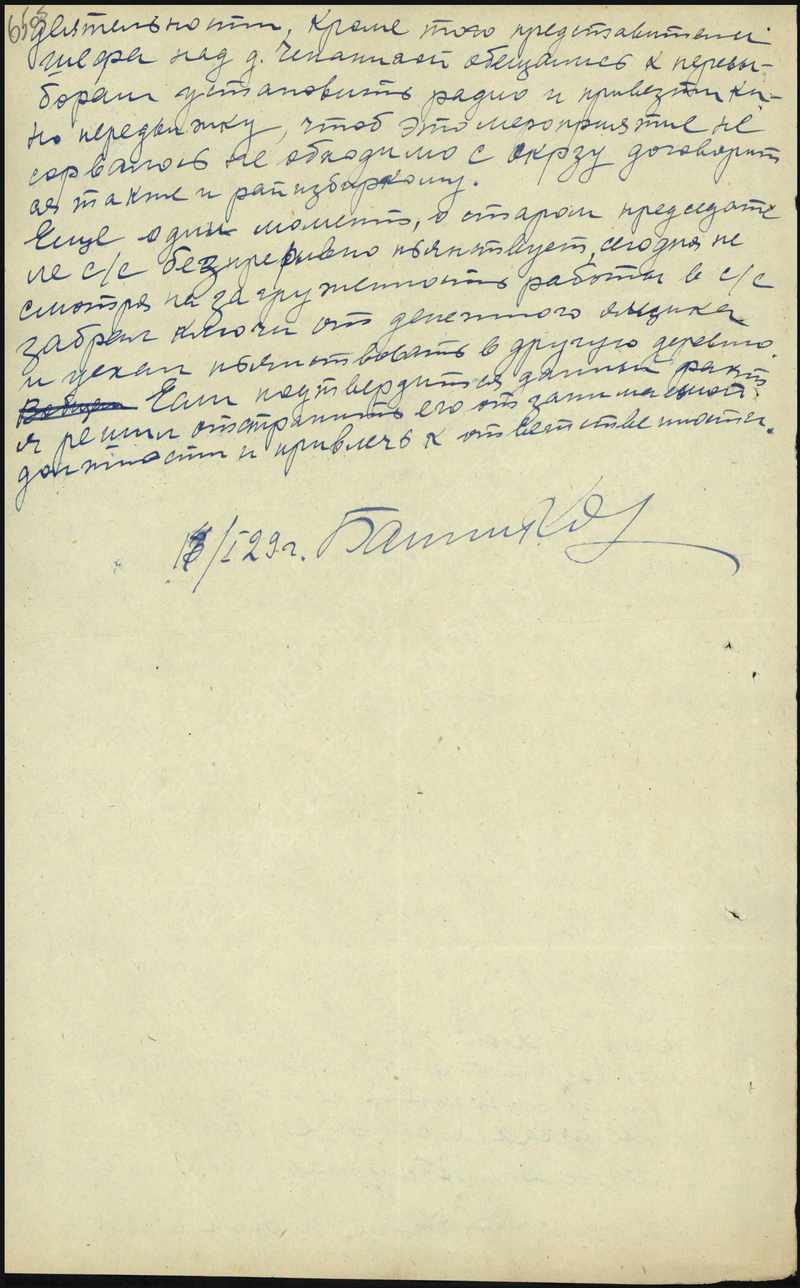 деятельности, кроме того представители
шефа над д. обещались к перевы-
борам установить радио и привезти ки-
но передвижку, чтоб это мероприятие не
сорвалось не обходимо с окрзу договорит
ся также и райизбиркому.
Еще один момент, о старом председате
ле с/с безпрерывно пьянствует, сегодня не
смотря на загруженность работы в с/с
забрал ключи от денежного ящика
и уехал пьянствовать в другую деревню.
Если подтвердится данный факт
я решил отстранить его от занимаемой
должности и привлечь к ответственности.
/I 29 г.